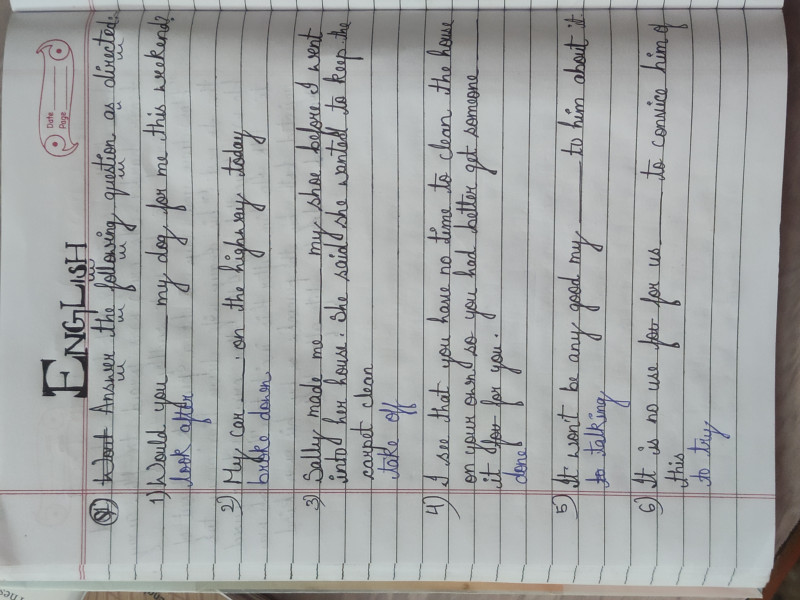 Date
Page
ENGLISH
Q1) Want Answer the following question as directed:
1) Would you ____ my dog for me this weekend?
look after
2) My car ____. on the highway today
broke down
3) Sally made me ____ my shoe before I went
into her house. She said she wanted to keep the
carpet clean
take off
4) I see that you have no time to clean the house
on your own so you had better get someone
it for for you.
done
5) It won't be any good my ____ to him about it
to talking
6) It is no use for for us ____ to convice him of
this
to try